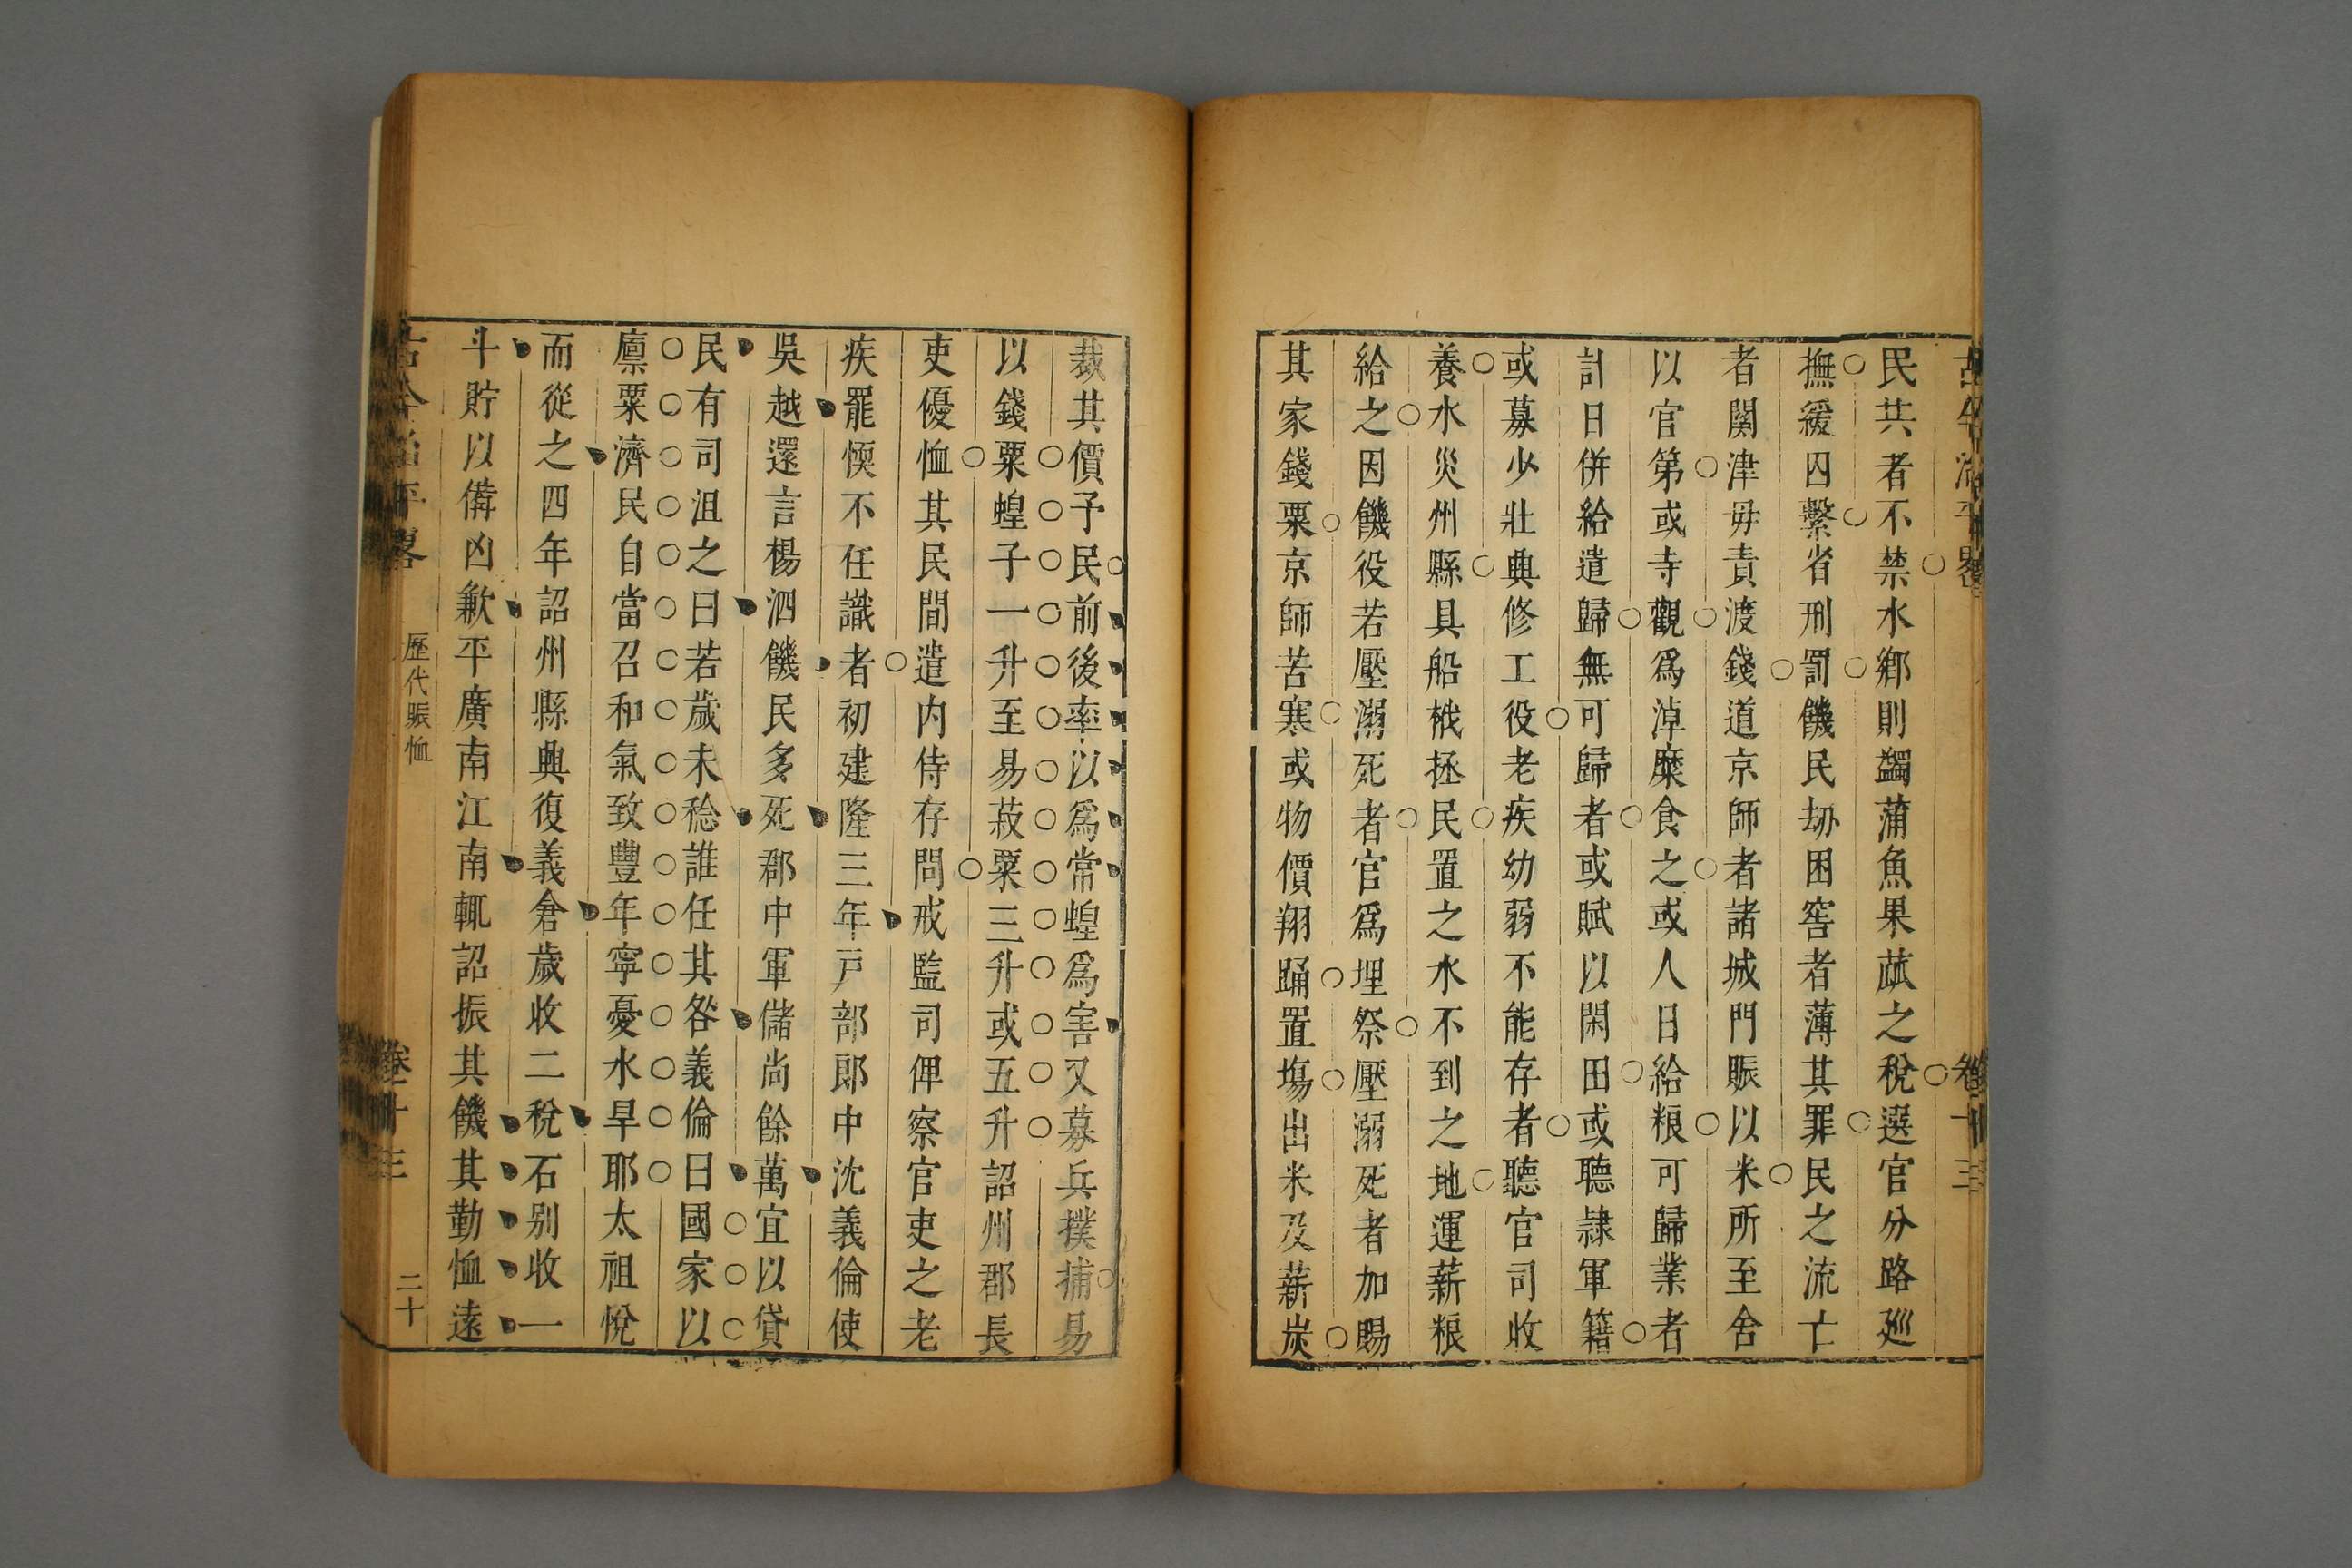 民共者不禁水鄉則蠲蒲魚果蓏之稅選官分路廵
撫緩囚繫省刑罰饑民刼囷窖者薄其罪民之流亡
者關津毋責渡錢道京師者諸城門賑以米所至舍
以官第或寺觀爲淖糜食之或人日給粮可歸業者
計日併給遣歸無可歸者或賦以閑田或聽隷軍籍
或募少壯興修工役老疾幼弱不能存者聽官司收
養水災州縣具船栰拯民置之水不到之地運薪粮
給之因饑役若壓溺死者官爲埋祭壓溺死者加賜
其家錢粟京師苦寒或物價翔踊置塲出米及薪炭
裁其價予民前後率以爲常蝗爲害又募兵撲捕易
以錢粟蝗子一升至易菽粟三升或五升詔州郡長
吏優恤其民間遣内侍存問戒監司俾察官吏之老
疾罷愞不任識者初建隆三年戸部郎中沈義倫使
吳越還言楊泗饑民多死郡中軍儲尚餘萬宜以貸
民有司沮之曰若歲未稔誰任其咎義倫曰國家以
廪粟濟民自當召和氣致豐年寧憂水旱耶太祖悅
而從之四年詔州縣興復義倉歲收二稅石别收一
斗貯以備凶歉平廣南江南輒詔振其饑其勤恤遠
歷代賑恤
卷十三
二十